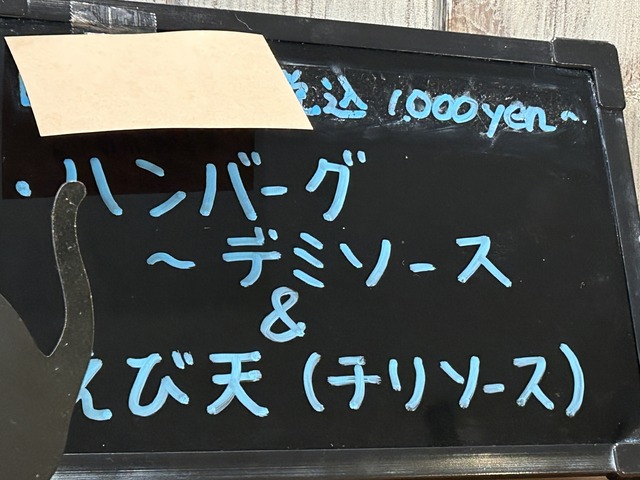 税込 1000yen~
・ハンバーグ
~デミソース
&
えび天(チリソース)